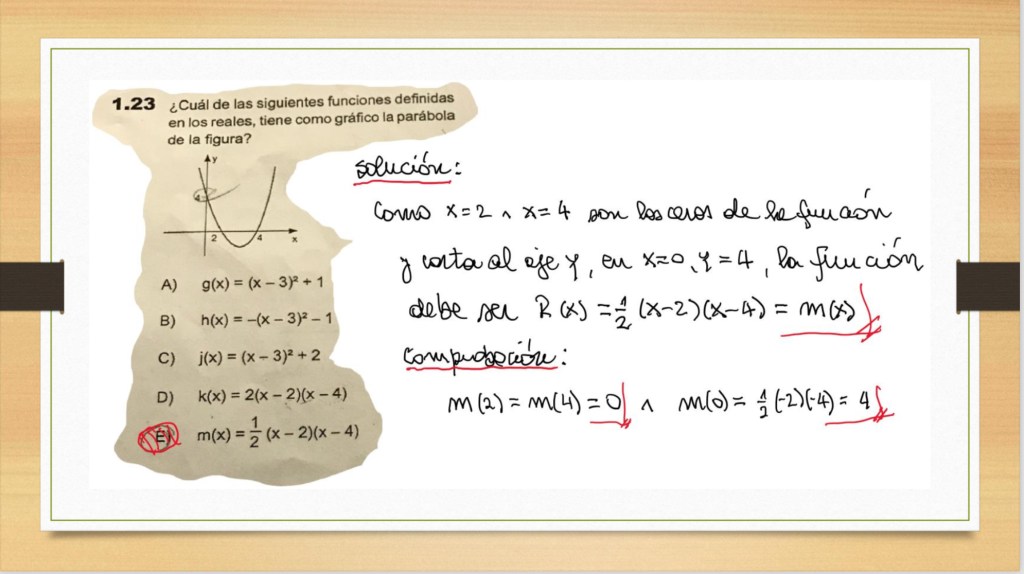 1.23 ¿Cuál de las siguientes funciones definidas
en los reales, tiene como gráfico la parábola
de la figura?
y
4
2
4
x
A) g(x) = (x – 3)² + 1
B) h(x) = –(x – 3)² – 1
C) j(x) = (x – 3)² + 2
D) k(x) = 2(x – 2)(x – 4)
E) m(x) = 1/2 (x – 2)(x – 4)
solución:
Como x=2 ∧ x=4 son los ceros de la función
y corta al eje Y, en x=0, y=4, la función
debe ser R(x) = 1/2 (x-2)(x-4) = m(x)
comprobación:
m(2) = m(4) = 0 ∧ m(0) = 1/2 (-2)(-4) = 4